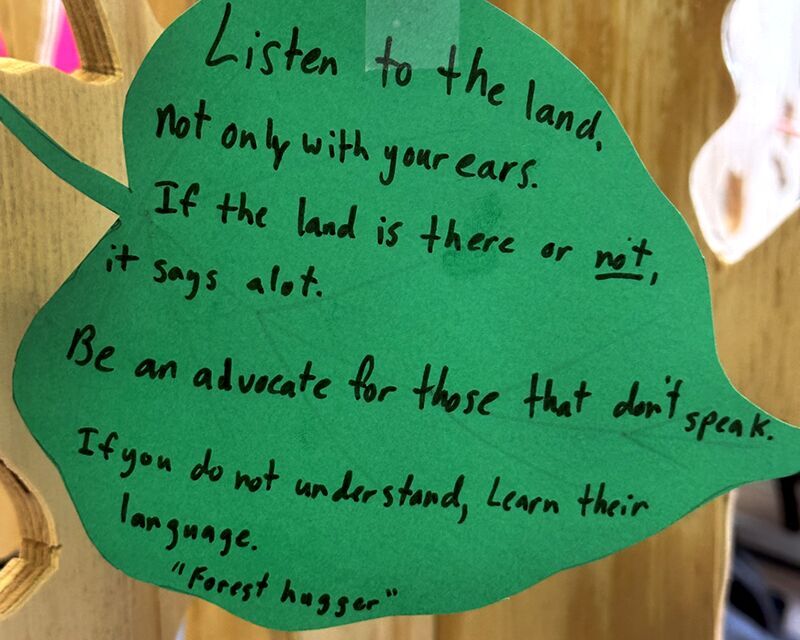 Listen to the land,
not only with your ears.
If the land is there or not,
it says alot.
Be an advocate for those that don't speak.
If you do not understand, Learn their
language.
"Forest hugger"